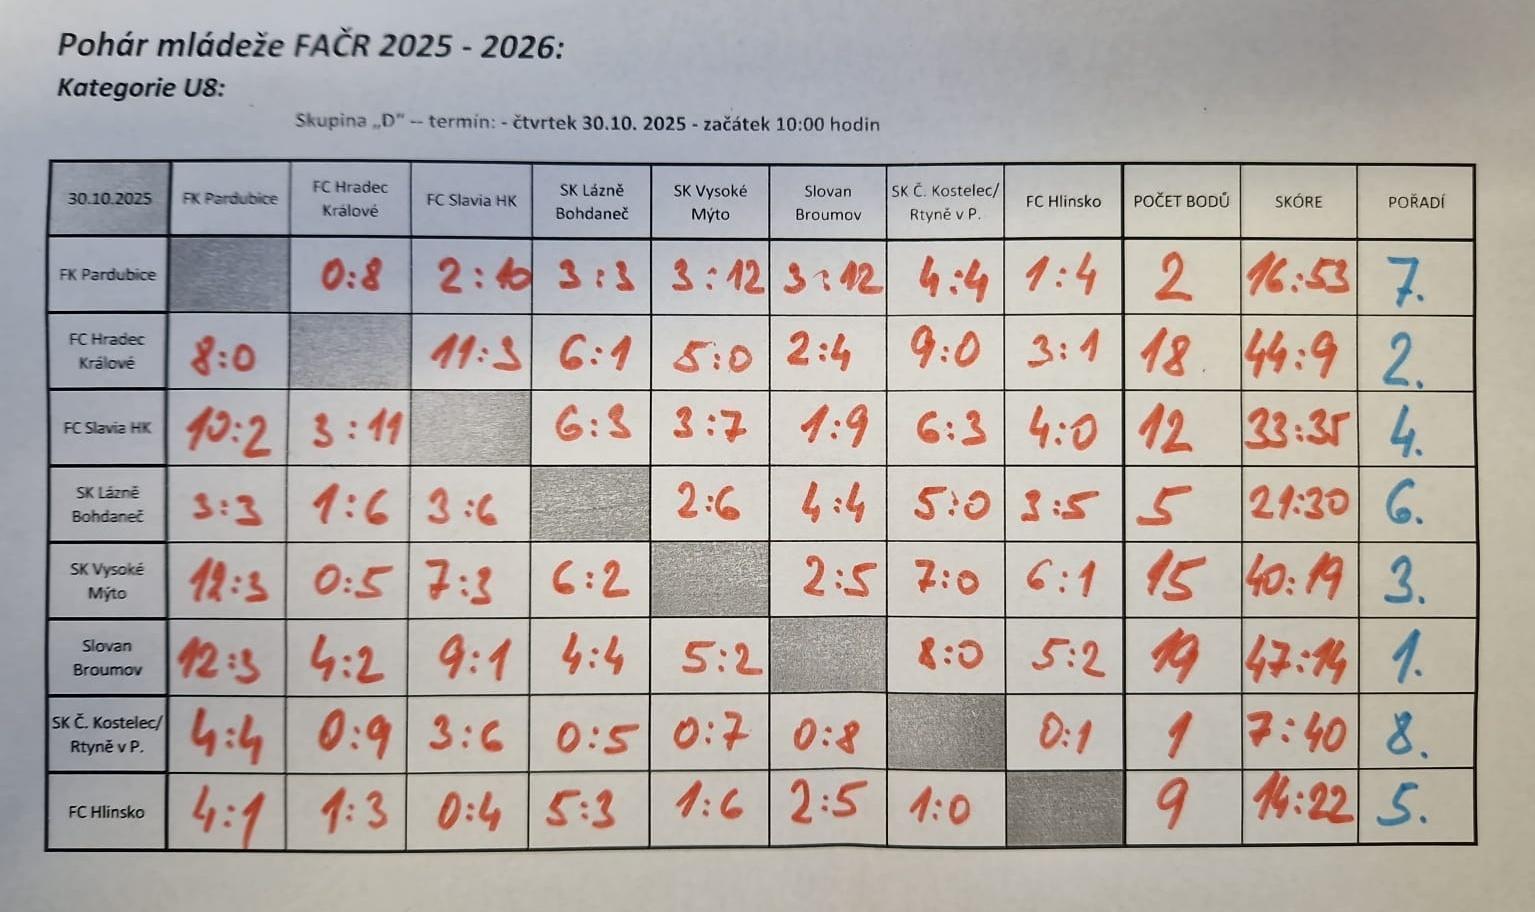 Pohár mládeže FAČR 2025 - 2026:
Kategorie U8:
Skupina „D“ -- termín: - čtvrtek 30.10. 2025 - začátek 10:00 hodin
30.10.2025 FK Pardubice FC Hradec Králové FC Slavia HK SK Lázně Bohdaneč SK Vysoké Mýto Slovan Broumov SK Č. Kostelec/ Rtyně v P. FC Hlinsko POČET BODŮ SKÓRE POŘADÍ
FK Pardubice 0:8 2:10 3:3 3:12 3:12 4:4 1:4 2 16:53 7.
FC Hradec Králové 8:0 11:3 6:1 5:0 2:4 9:0 3:1 18 44:9 2.
FC Slavia HK 10:2 3:11 6:3 3:7 1:9 6:3 4:0 12 33:35 4.
SK Lázně Bohdaneč 3:3 1:6 3:6 2:6 4:4 5:0 3:5 5 21:30 6.
SK Vysoké Mýto 12:3 0:5 7:3 6:2 2:5 7:0 6:1 15 40:19 3.
Slovan Broumov 12:3 4:2 9:1 4:4 5:2 8:0 5:2 19 47:14 1.
SK Č. Kostelec/ Rtyně v P. 4:4 0:9 3:6 0:5 0:7 0:8 0:1 1 7:40 8.
FC Hlinsko 4:1 1:3 0:4 5:3 1:6 2:5 1:0 9 14:22 5.